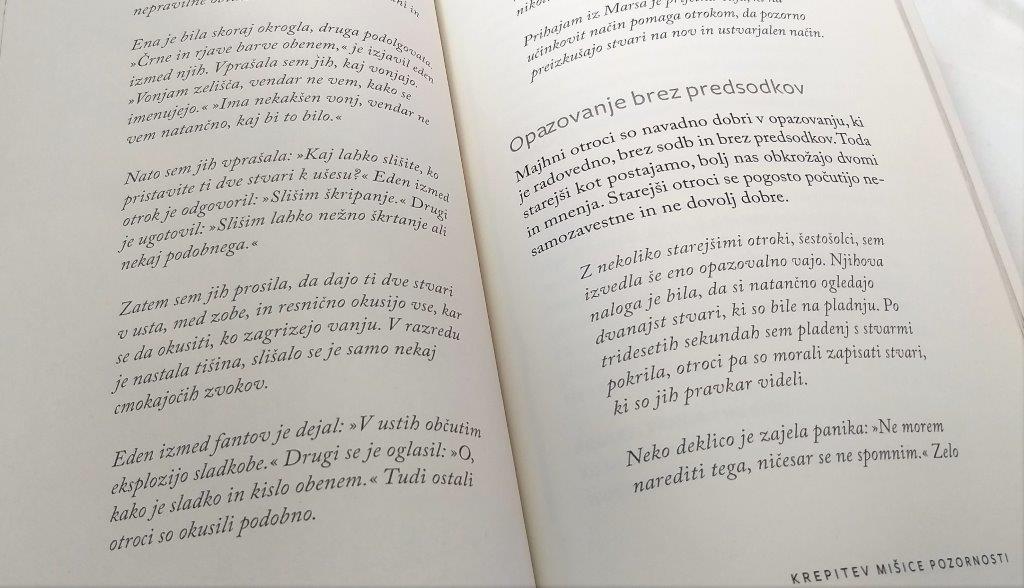 nepravilne
in
Ena je bila skoraj okrogla, druga podolgovata.
»Črne in rjave barve obenem,« je izjavil eden
izmed njih. Vprašala sem jih, kaj vonjajo.
»Vonjam zelišča, vendar ne vem, kako se
imenujejo.« »Ima nekakšen vonj, vendar ne
vem natančno, kaj bi to bilo.«
Nato sem jih vprašala: »Kaj lahko slišite, ko
pristavite ti dve stvari k ušesu?« Eden izmed
otrok je odgovoril: »Slišim škripanje.« Drugi
je ugotovil: »Slišim lahko nežno škrtanje ali
nekaj podobnega.«
Zatem sem jih prosila, da dajo ti dve stvari
v usta, med zobe, in resnično okusijo vse, kar
se da okusiti, ko zagrizejo vanju. V razredu
je nastala tišina, slišalo se je samo nekaj
cmokajočih zvokov.
Eden izmed fantov je dejal: »V ustih občutim
eksplozijo sladkobe.« Drugi se je oglasil: »O,
kako je sladko in kislo obenem.« Tudi ostali
otroci so okusili podobno.
Prihajam iz Marsa je
učinkovit način pomaga otrokom, da pozorno
preizkušajo stvari na nov in ustvarjalen način.
Opazovanje brez predsodkov
Majhni otroci so navadno dobri v opazovanju, ki
je radovedno, brez sodb in brez predsodkov. Toda
starejši kot postajamo, bolj nas obkrožajo dvomi
in mnenja. Starejši otroci se pogosto počutijo ne-
samozavestne in ne dovolj dobre.
Z nekoliko starejšimi otroki, šestošolci, sem
izvedla še eno opazovalno vajo. Njihova
naloga je bila, da si natančno ogledajo
dvanajst stvari, ki so bile na pladnju. Po
tridesetih sekundah sem pladenj s stvarmi
pokrila, otroci pa so morali zapisati stvari,
ki so jih pravkar videli.
Neko deklico je zajela panika: »Ne morem
narediti tega, ničesar se ne spomnim.« Zelo
KREPITEV MIŠICE POZORNOSTI